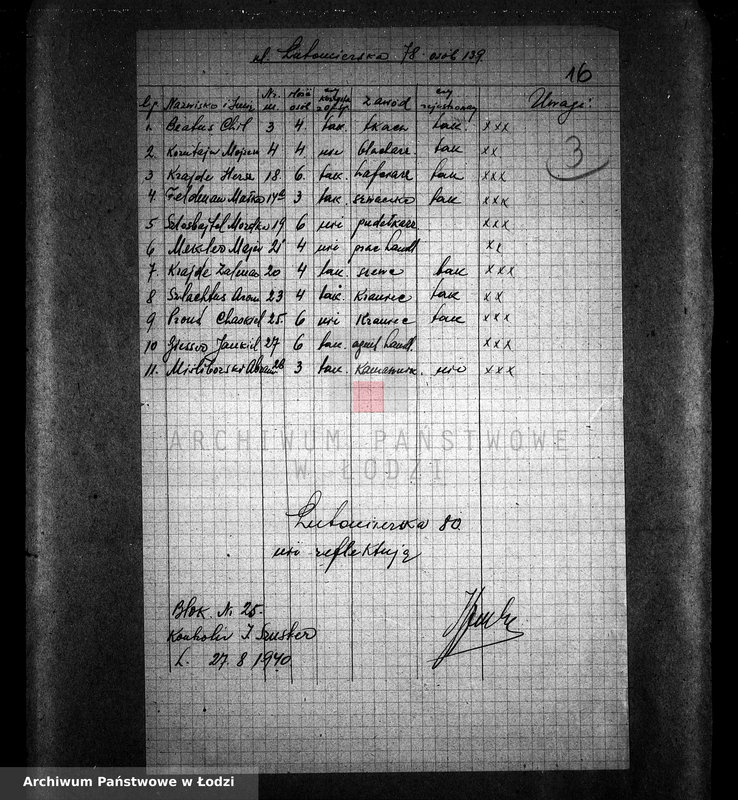 ul. Lutomierska 78 osób 139
16
L.p. Nazwisko i Imię Nr. m. ilość osób czy zawód czy rejestrowany Uwagi:
1. Beatus Chil 3 4. tak. tkacz tak. xxx
2. 4 4 nie blacharz tak xx
3
3 Krajde Hersz 18. 6. tak. tak xxx
4 Feldman 3 tak. tak xxx
5 19 6 nie pudełkarz xxx
6 21 4 nie prac handl xx
7. Krajde Zalma 20 4 tak. szewc tak xxx
8 Szlachtus Aron 23 4 tak. Krawiec tak xx
9 Chaskiel 25. 6 nie Krawiec tak xxx
10 Jankiel 27 6 tak. agent handl. xxx
11. Misliborski Abram 28 3 tak. Kamasznik. nie xxx
ARCHIWUM PAŃSTWOWE
W ŁODZI
Lutomierska 80
nie reflektują
Blok. Nr 25.
Kontroler I. Szuster
Ł. 27. 8. 1940.
Archiwum Państwowe w Łodzi